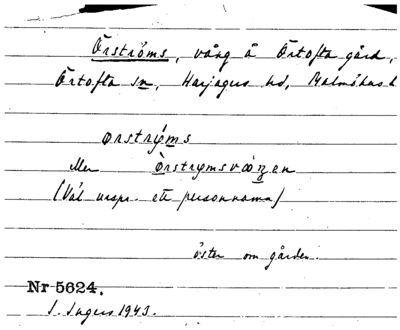 Örströms, vång å Örtofta gård,
Örtofta sn, Harjagers hd, Malmöhus l
ørstrýms
eller Örstrymsvåŋen
(Väl urspr. ett personnamn)
öster om gården.
Nr 5624.
I. Ingers 1943.